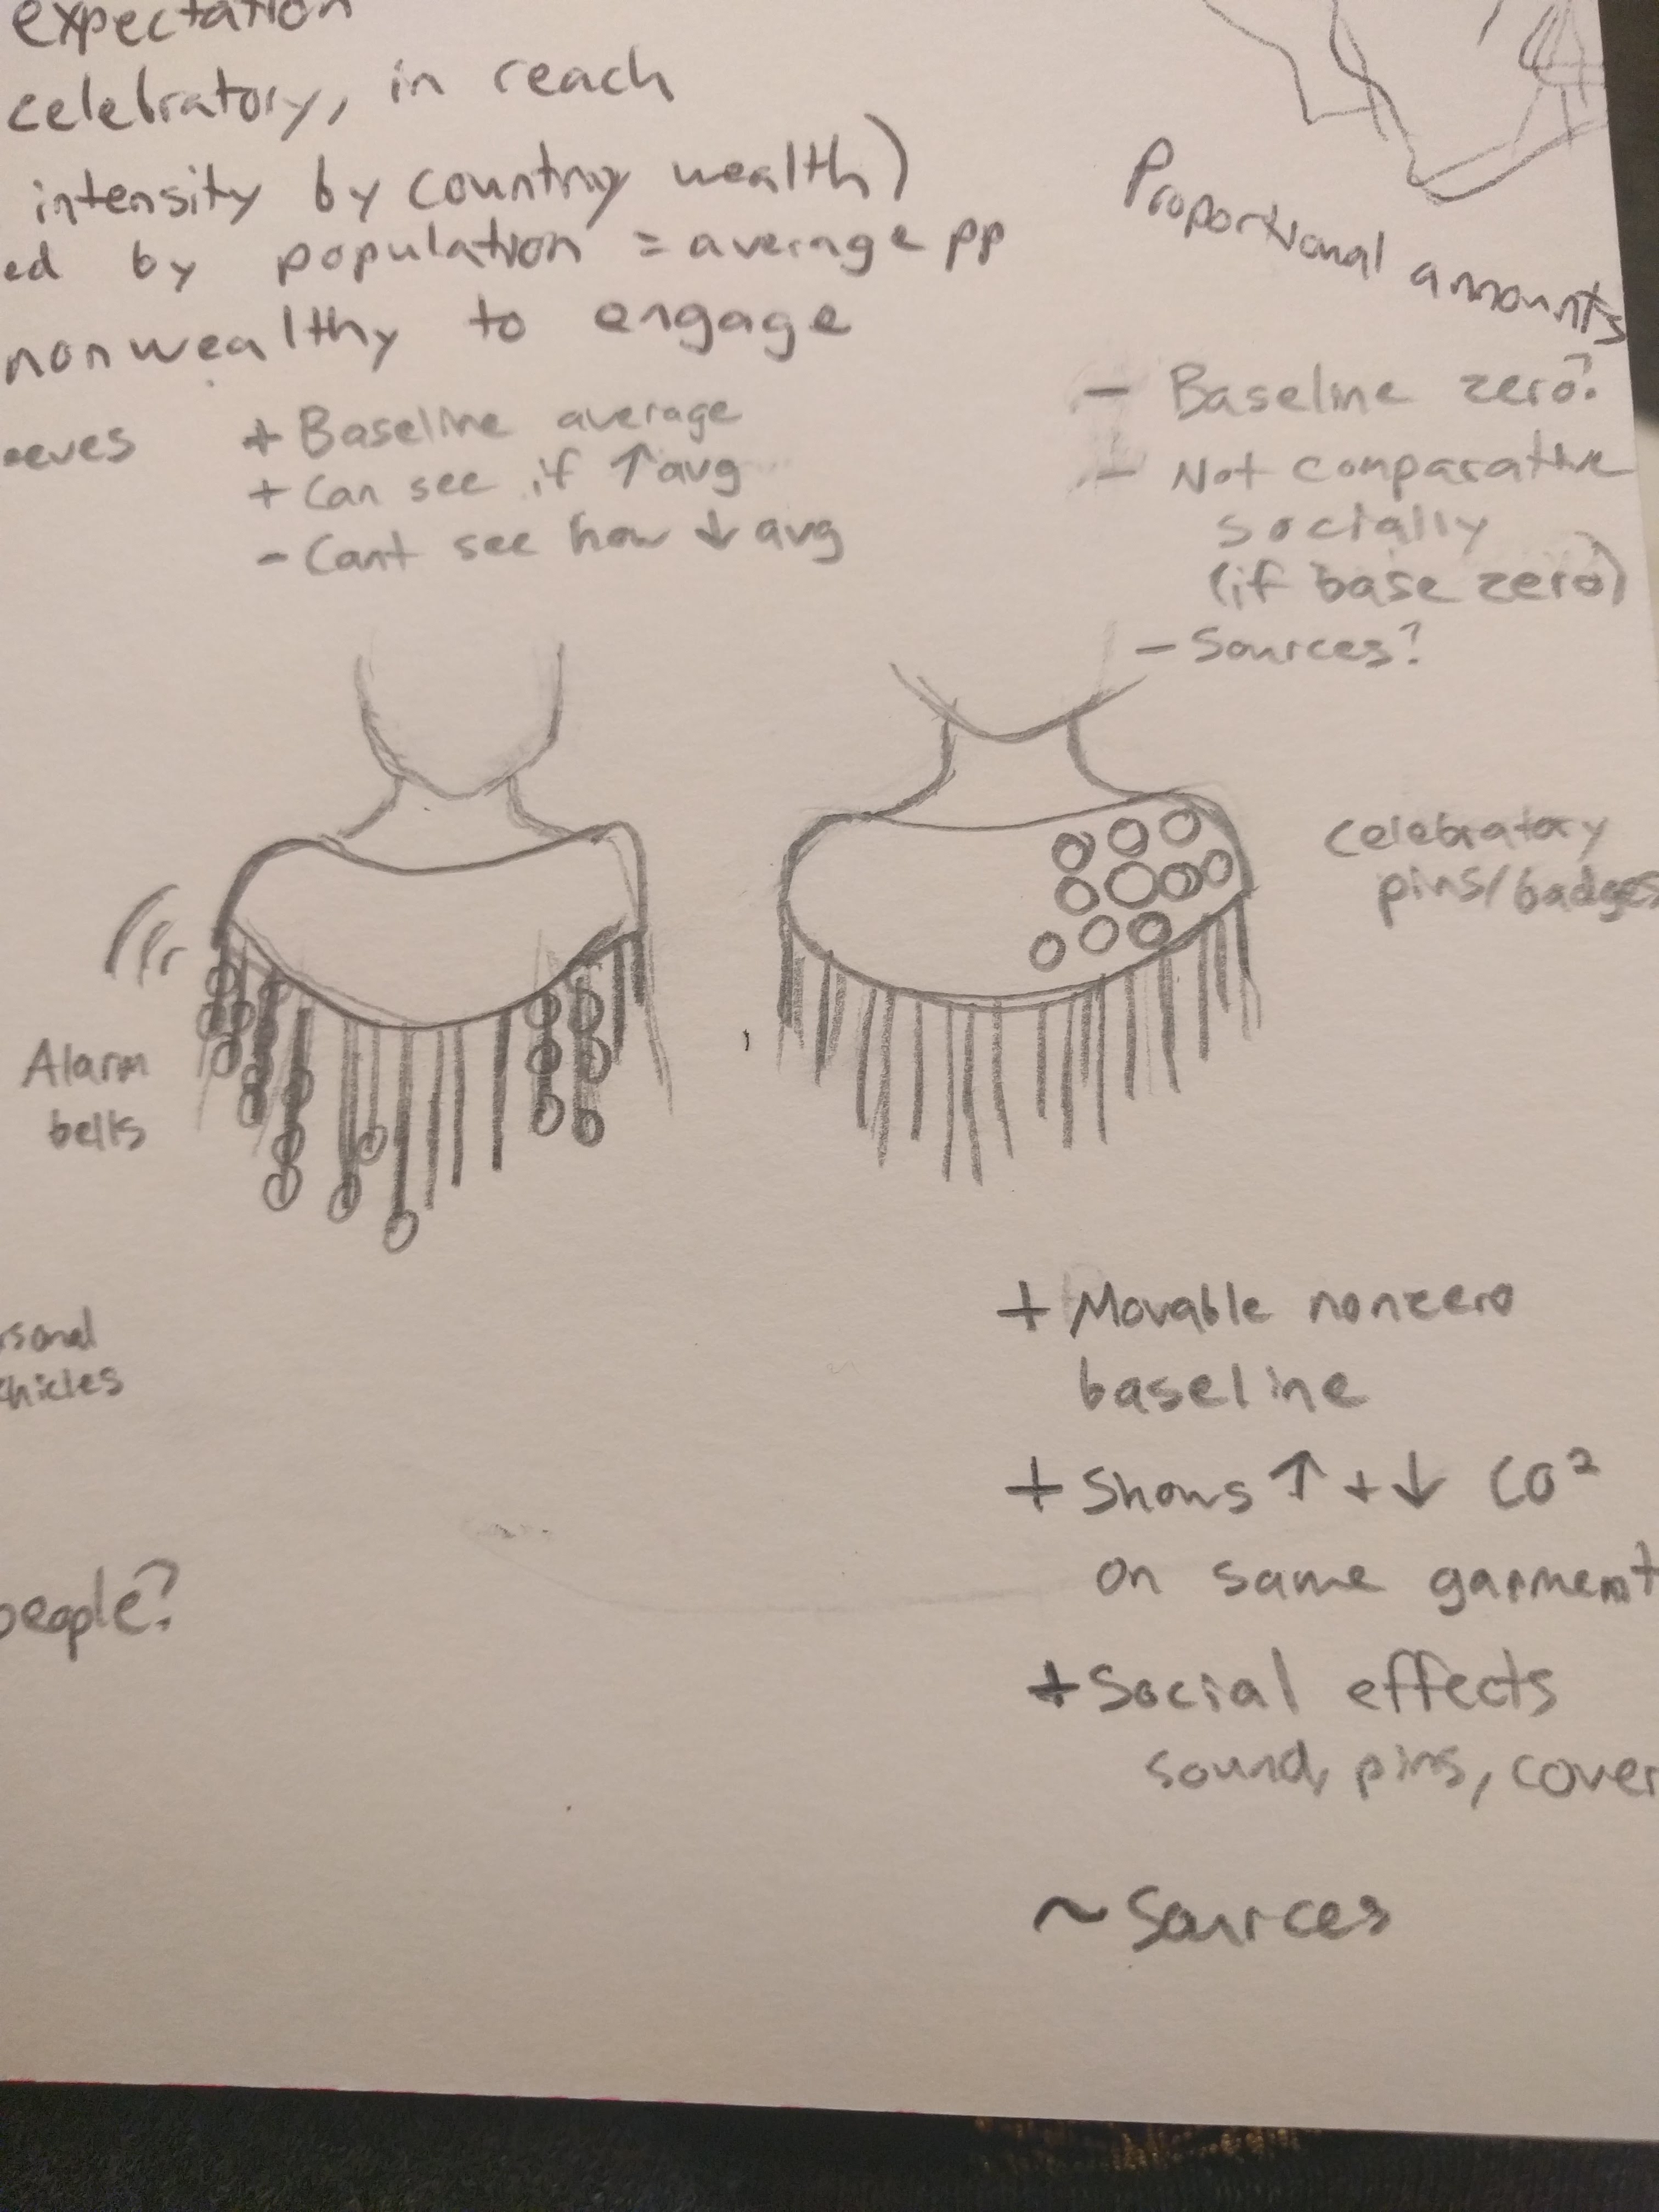 expectation
celebratory, in reach
intensity by country wealth)
ed by population = average pp
nonwealthy to engage
eeves
+ Baseline average
+ Can see if ↑ avg
- Cant see how ↓ avg
Proportional amounts
- Baseline zero?
- Not comparative
socially
(if base zero)
- Sources?
Alarm
bells
celebratory
pins/badges
rsonal
hicles
people?
+ Movable nonzero
baseline
+ Shows ↑ + ↓ CO²
on same garment
+ Social effects
sound, pins, cover
~ Sources